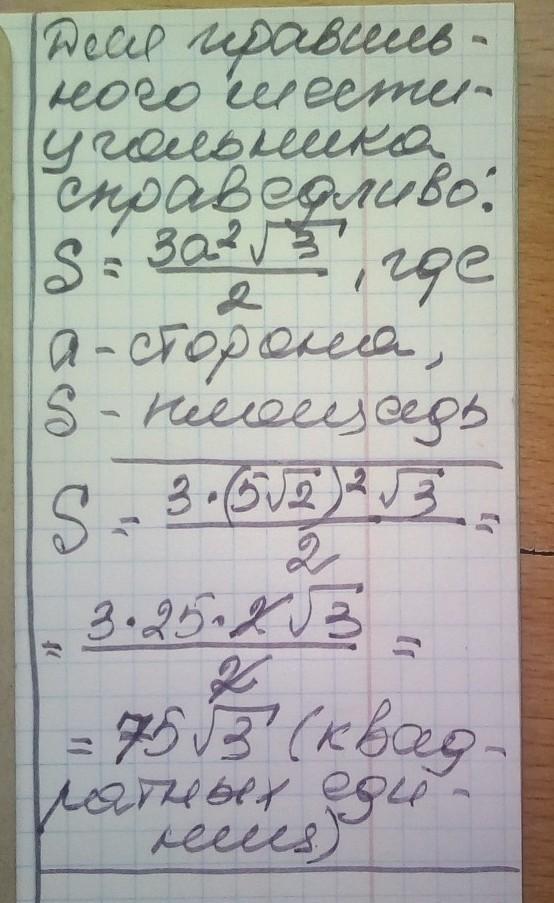 Для правиль-
ного шести-
угольника
справедливо:
S = 3a²√3 / 2, где
a - сторона,
S - площадь
S = 3·(5√2)²√3 / 2 =
= 3·25·2√3 / 2 =
= 75√3 (квад-
ратных еди-
ниц)